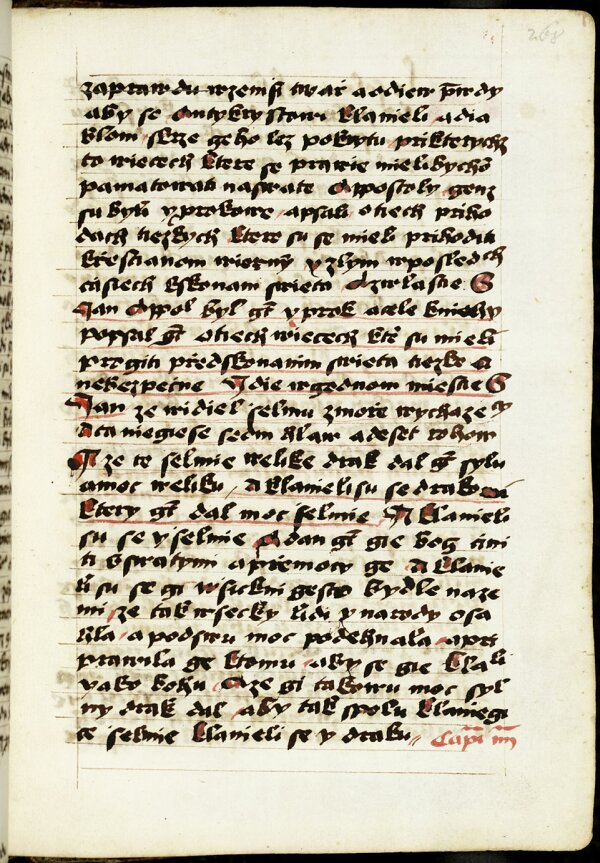 268
zaprawdu wrzemsl twař aodiew p̄wdy
aby se Antykrystowi klanieli adia
blom skrze geho lez pokrytu prikterychz
to wiecech ktere se prawie mielibychō
pamatowati naswate Appostoly genz
su byli y prokowe apsali otiech priho
dach tiezkych ktere su se mieli prihoditi
křestianom wiernȳ y zlym wposledch
čiasiech kskonani swieta Azwlastie S
Jan Appol byl gt̄ y prok acele knichy
popsal gt̄ otiech wiecech kte su mieli
progiti předskonanim swieta tiezke a
nebezpečne Jdie wgednom miestie S
Jan ze widiel selmu zmoře wychaze
Ata miegiese sedm hlaw adeset rohow
A ze te selmie welike drak dal gt̄ sylu
amoc weliku Aklanielisu se drakowi
ktery gt̄ dal moc selmie A klanieli
su se y selmie Adan gt̄ gie bog čini
ti bswatymi apřemocy ge Aklanie
li su se gi wsickni gesto bydle naze
mi ze tak wsecky lidi y narody osa
hla apodswu moc podehnala apri
prawila ge ktomu aby se gie klali
yako bohu Aze gi takowu moc syl
ny drak dal aby tak spolu klaniegi
ce selmie klanieli se y draku Capi iiii